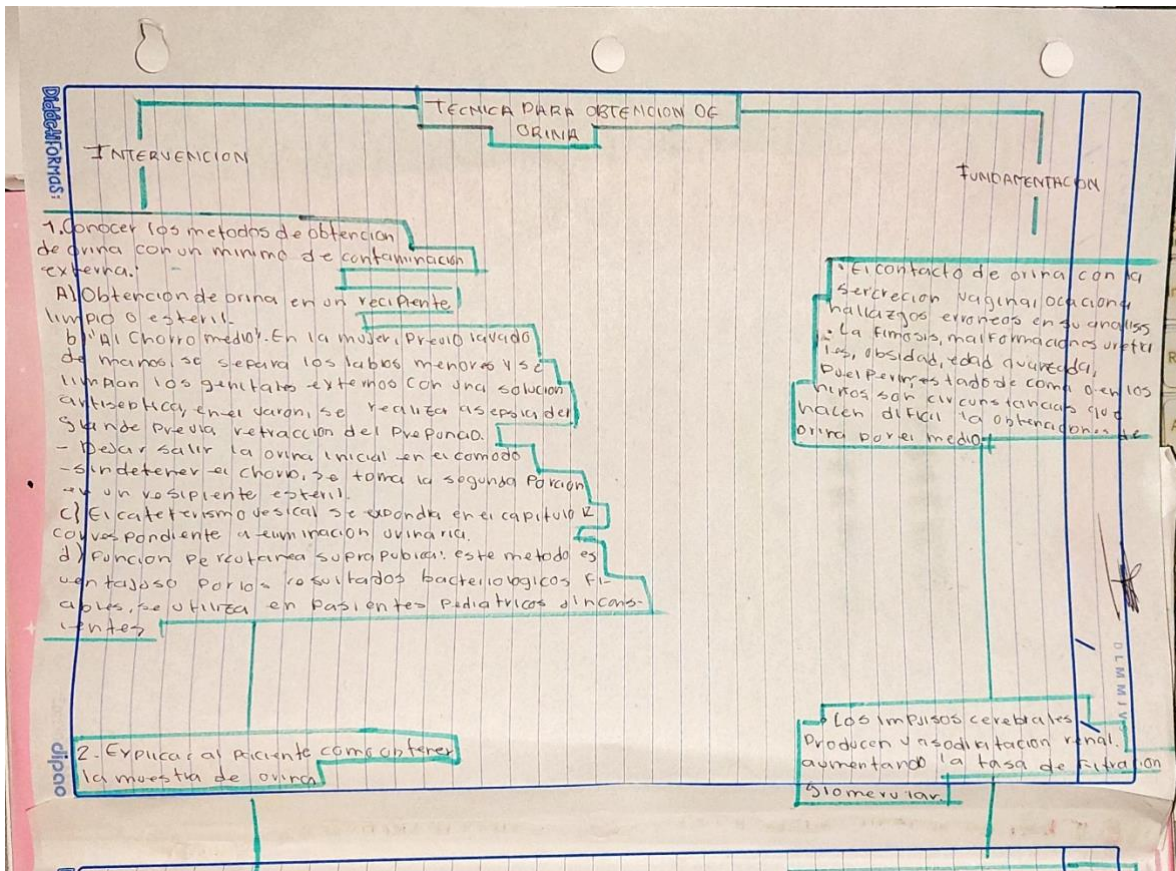 TECNICA PARA OBTENCION DE
ORINA
INTERVENCION
1. Conocer los metodos de obtencion
de orina con un minimo de contaminacion
externa.
A) Obtencion de orina en un recipiente
limpio o esteril.
b) "Al Chorro medio". En la mujer, previo lavado
de manos, se separa los labios menores y se
limpian los genitales externos con una solucion
antiseptica, en el varon, se realiza asepsia del
glande previa retraccion del Prepuncio.
- Dejar salir la orina inicial en el comodo
- sin detener el chorro, se toma la segunda Porcion
en un resipiente esteril.
c) El cateterismo vesical se expondra en el capitulo 12
correspondiente a eliminacion urinaria.
d) Puncion Percutanea suprapubica: este metodo es
ventajoso por los resultados bacteriologicos fi-
ables, se utiliza en pasientes pediatricos o incons-
ientes
2. Explicar al paciente como obtener
la muestra de orina
FUNDAMENTACION
· El contacto de orina con la
sercrecion vaginal ocaciona
hallazgos erroneos en su analisis
· La fimosis, malformaciones uretra
les, obsidad, edad avanzada,
estado de coma o en los
niños son circunstancias que
hacen dificil la obtencion de
orina por el medio
· Los impulsos cerebrales
Producen vasodilatacion renal.
aumentando la tasa de filtracion
glomerular.
DiddelFORMAS:
dipao
D L M M J V